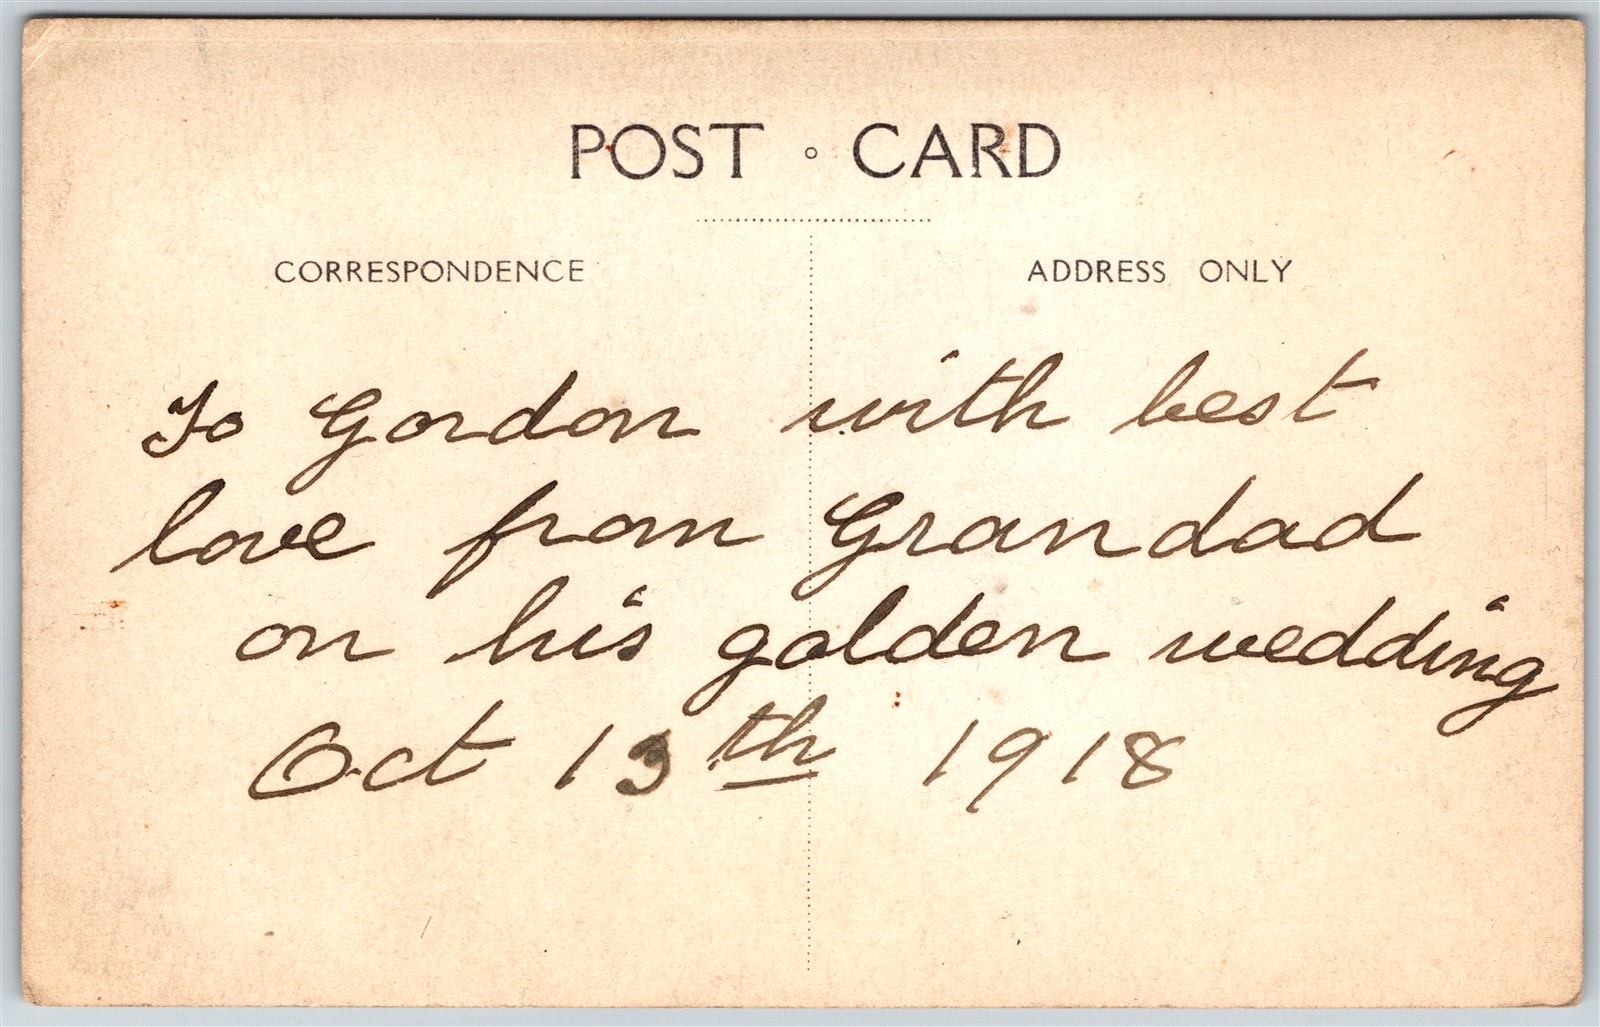 POST CARD
CORRESPONDENCE
ADDRESS ONLY
To Gordon with best
love from Grandad
on his golden wedding
Oct 13th 1918